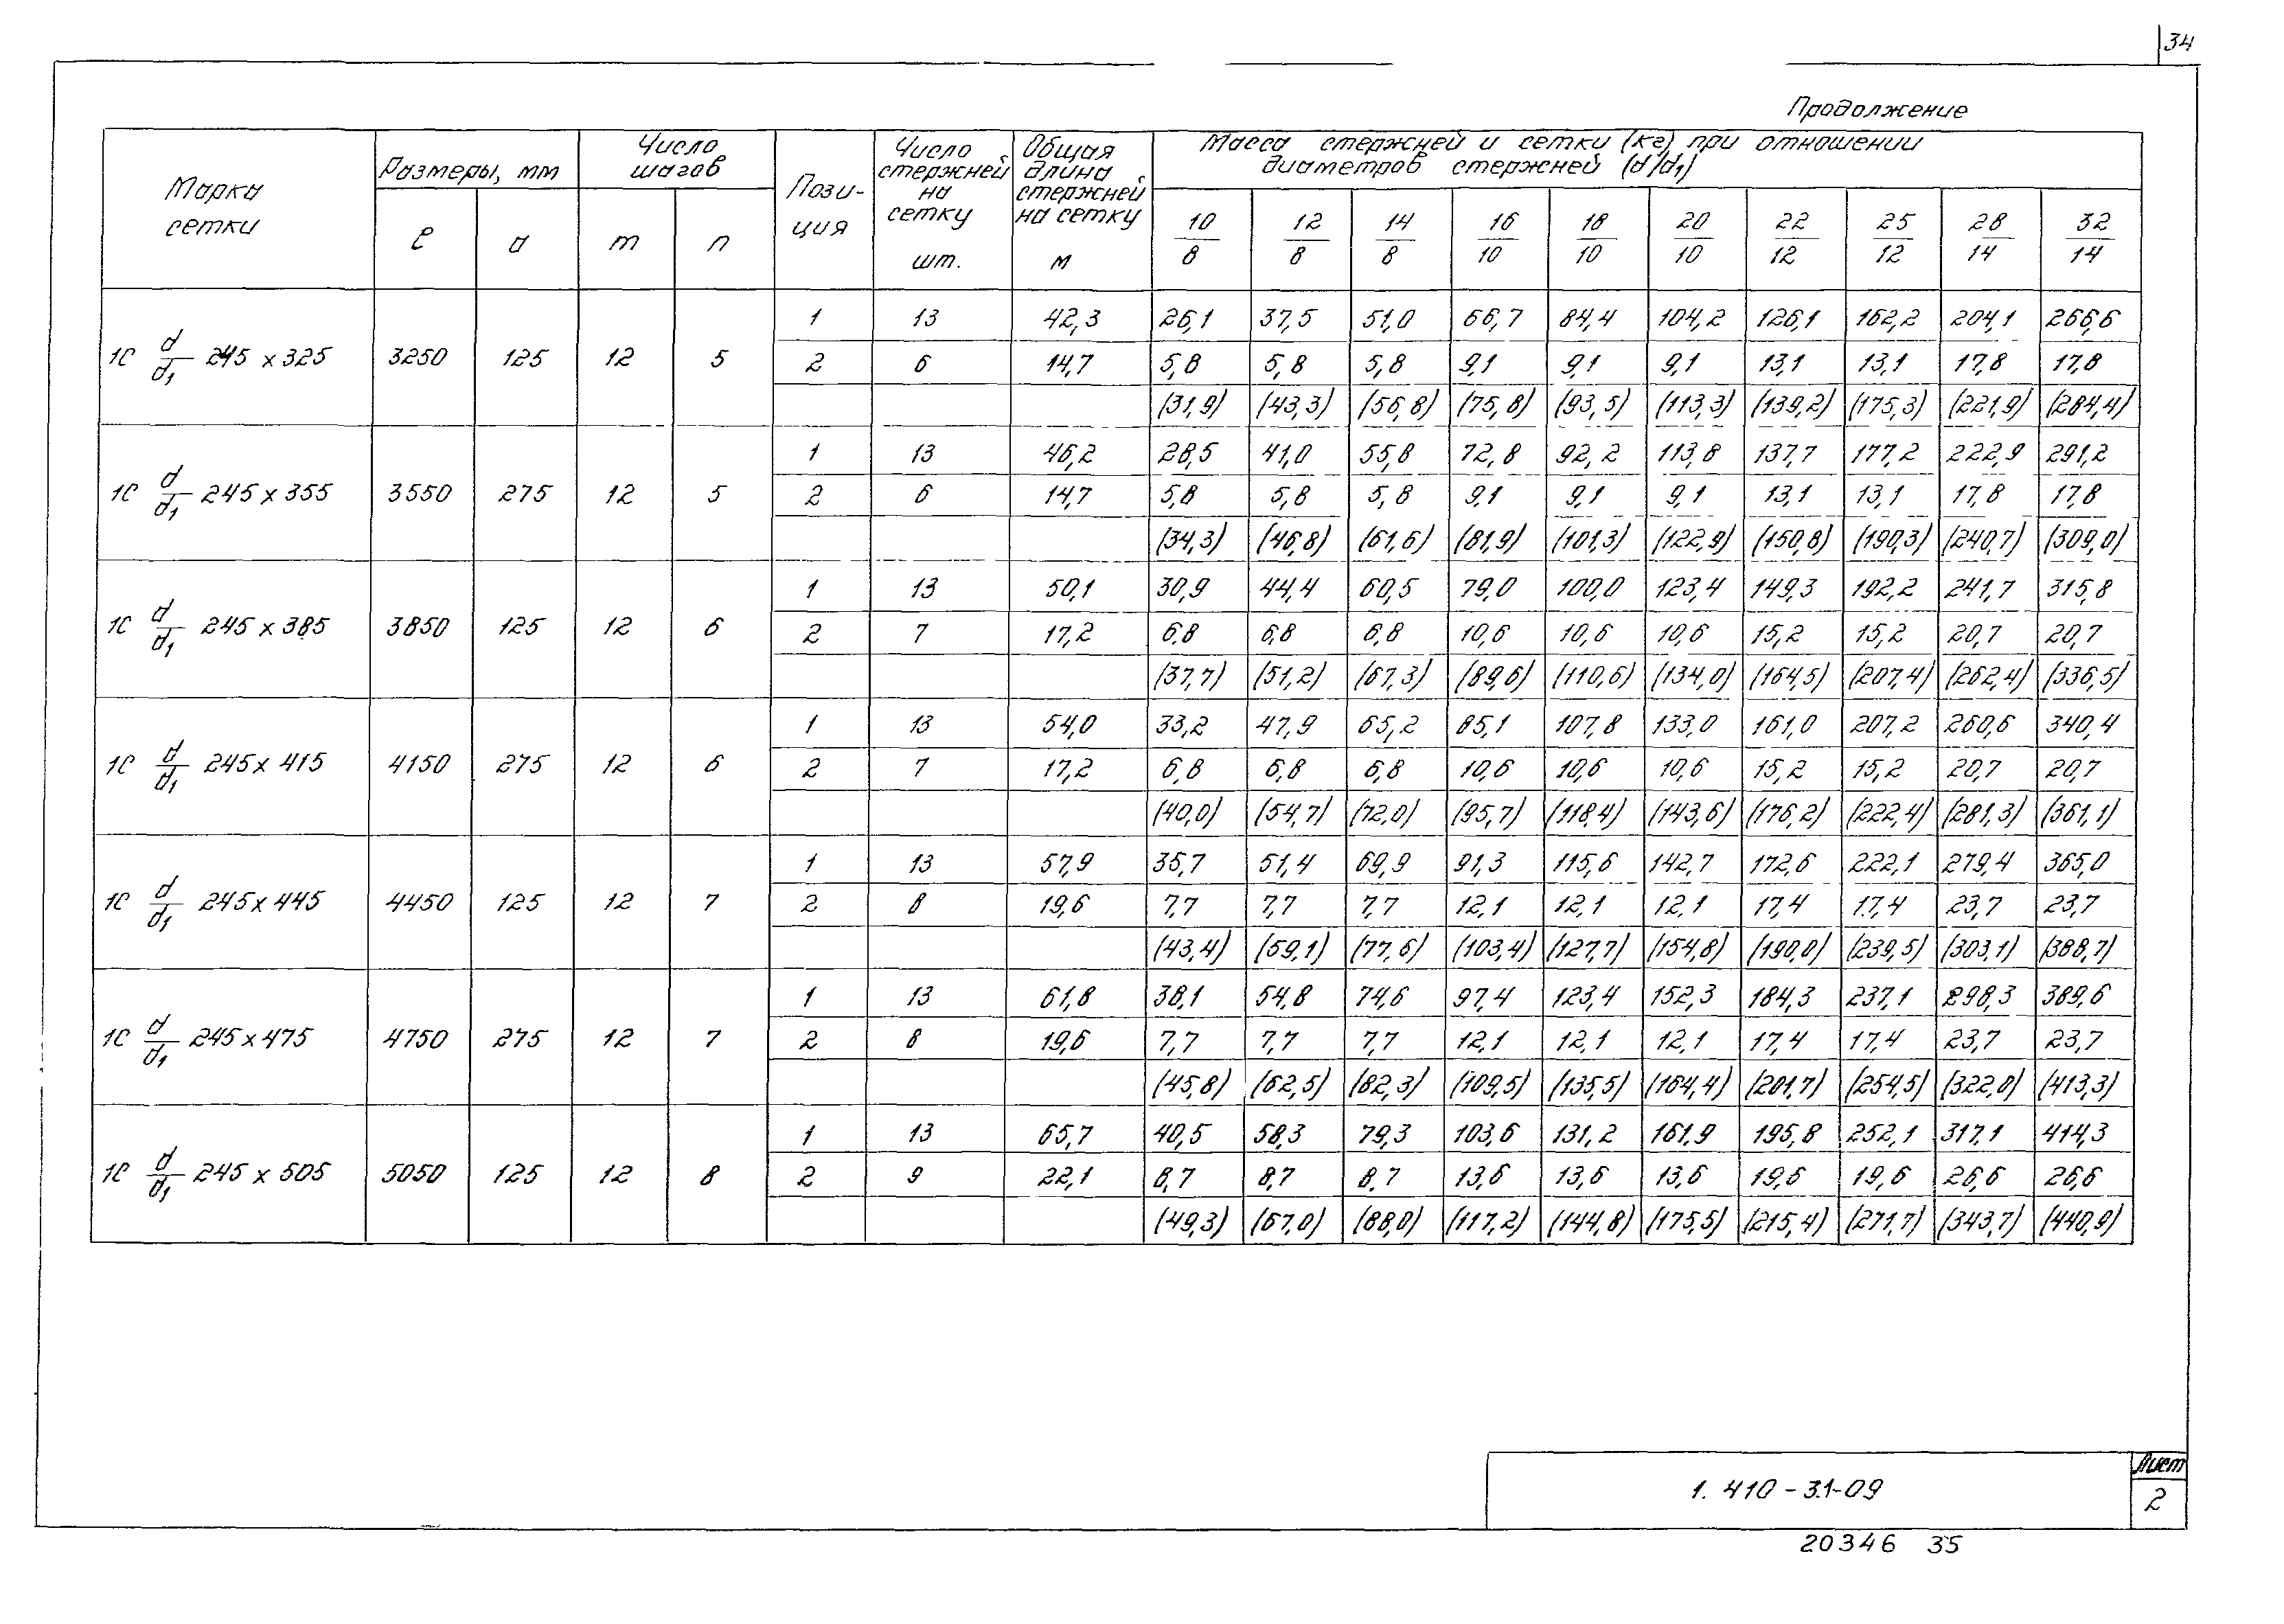 34
Продолжение
Марка сетки | Размеры, мм | Число шагов | Пози-ция | Число стержней на сетку шт. | Общая длина стержней на сетку м | Масса стержней и сетки (кг) при отношении диаметров стержней (d/d1)
ℓ | a | m | n | 10/8 | 12/8 | 14/8 | 16/10 | 18/10 | 20/10 | 22/12 | 25/12 | 28/14 | 32/14
1 | 13 | 42,3 | 26,1 | 37,5 | 51,0 | 66,7 | 84,4 | 104,2 | 126,1 | 162,2 | 204,1 | 266,6
1С d/d1 245 x 325 | 3250 | 125 | 12 | 5 | 2 | 6 | 14,7 | 5,8 | 5,8 | 5,8 | 9,1 | 9,1 | 9,1 | 13,1 | 13,1 | 17,8 | 17,8
(31,9) | (43,3) | (56,8) | (75,8) | (93,5) | (113,3) | (139,2) | (175,3) | (221,9) | (284,4)
1 | 13 | 46,2 | 28,5 | 41,0 | 55,8 | 72,8 | 92,2 | 113,8 | 137,7 | 177,2 | 222,9 | 291,2
1С d/d1 245 x 355 | 3550 | 275 | 12 | 5 | 2 | 6 | 14,7 | 5,8 | 5,8 | 5,8 | 9,1 | 9,1 | 9,1 | 13,1 | 13,1 | 17,8 | 17,8
(34,3) | (46,8) | (61,6) | (81,9) | (101,3) | (122,9) | (150,8) | (190,3) | (240,7) | (309,0)
1 | 13 | 50,1 | 30,9 | 44,4 | 60,5 | 79,0 | 100,0 | 123,4 | 149,3 | 192,2 | 241,7 | 315,8
1С d/d1 245 x 385 | 3850 | 125 | 12 | 6 | 2 | 7 | 17,2 | 6,8 | 6,8 | 6,8 | 10,6 | 10,6 | 10,6 | 15,2 | 15,2 | 20,7 | 20,7
(37,7) | (51,2) | (67,3) | (89,6) | (110,6) | (134,0) | (164,5) | (207,4) | (262,4) | (336,5)
1 | 13 | 54,0 | 33,2 | 47,9 | 65,2 | 85,1 | 107,8 | 133,0 | 161,0 | 207,2 | 260,6 | 340,4
1С d/d1 245 x 415 | 4150 | 275 | 12 | 6 | 2 | 7 | 17,2 | 6,8 | 6,8 | 6,8 | 10,6 | 10,6 | 10,6 | 15,2 | 15,2 | 20,7 | 20,7
(40,0) | (54,7) | (72,0) | (95,7) | (118,4) | (143,6) | (176,2) | (222,4) | (281,3) | (361,1)
1 | 13 | 57,9 | 35,7 | 51,4 | 69,9 | 91,3 | 115,6 | 142,7 | 172,6 | 222,1 | 279,4 | 365,0
1С d/d1 245 x 445 | 4450 | 125 | 12 | 7 | 2 | 8 | 19,6 | 7,7 | 7,7 | 7,7 | 12,1 | 12,1 | 12,1 | 17,4 | 17,4 | 23,7 | 23,7
(43,4) | (59,1) | (77,6) | (103,4) | (127,7) | (154,8) | (190,0) | (239,5) | (303,1) | (388,7)
1 | 13 | 61,8 | 38,1 | 54,8 | 74,6 | 97,4 | 123,4 | 152,3 | 184,3 | 237,1 | 298,3 | 389,6
1С d/d1 245 x 475 | 4750 | 275 | 12 | 7 | 2 | 8 | 19,6 | 7,7 | 7,7 | 7,7 | 12,1 | 12,1 | 12,1 | 17,4 | 17,4 | 23,7 | 23,7
(45,8) | (62,5) | (82,3) | (109,5) | (135,5) | (164,4) | (201,7) | (254,5) | (322,0) | (413,3)
1 | 13 | 65,7 | 40,5 | 58,3 | 79,3 | 103,6 | 131,2 | 161,9 | 195,8 | 252,1 | 317,1 | 414,3
1С d/d1 245 x 505 | 5050 | 125 | 12 | 8 | 2 | 9 | 22,1 | 8,7 | 8,7 | 8,7 | 13,6 | 13,6 | 13,6 | 19,6 | 19,6 | 26,6 | 26,6
(49,3) | (67,0) | (88,0) | (117,2) | (144,8) | (175,5) | (215,4) | (271,7) | (343,7) | (440,9)
1. 410 - 3.1-09
Лист
2
20346 35